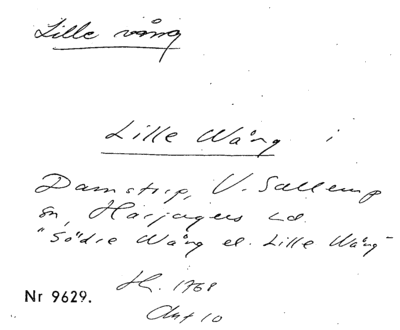 Lille vång
Lille Wång i
Damstorp, V. Sallerup
sn, Harjagers hd.
"Södre Wång el. Lille Wång"
Nr 9629.
Akt 10